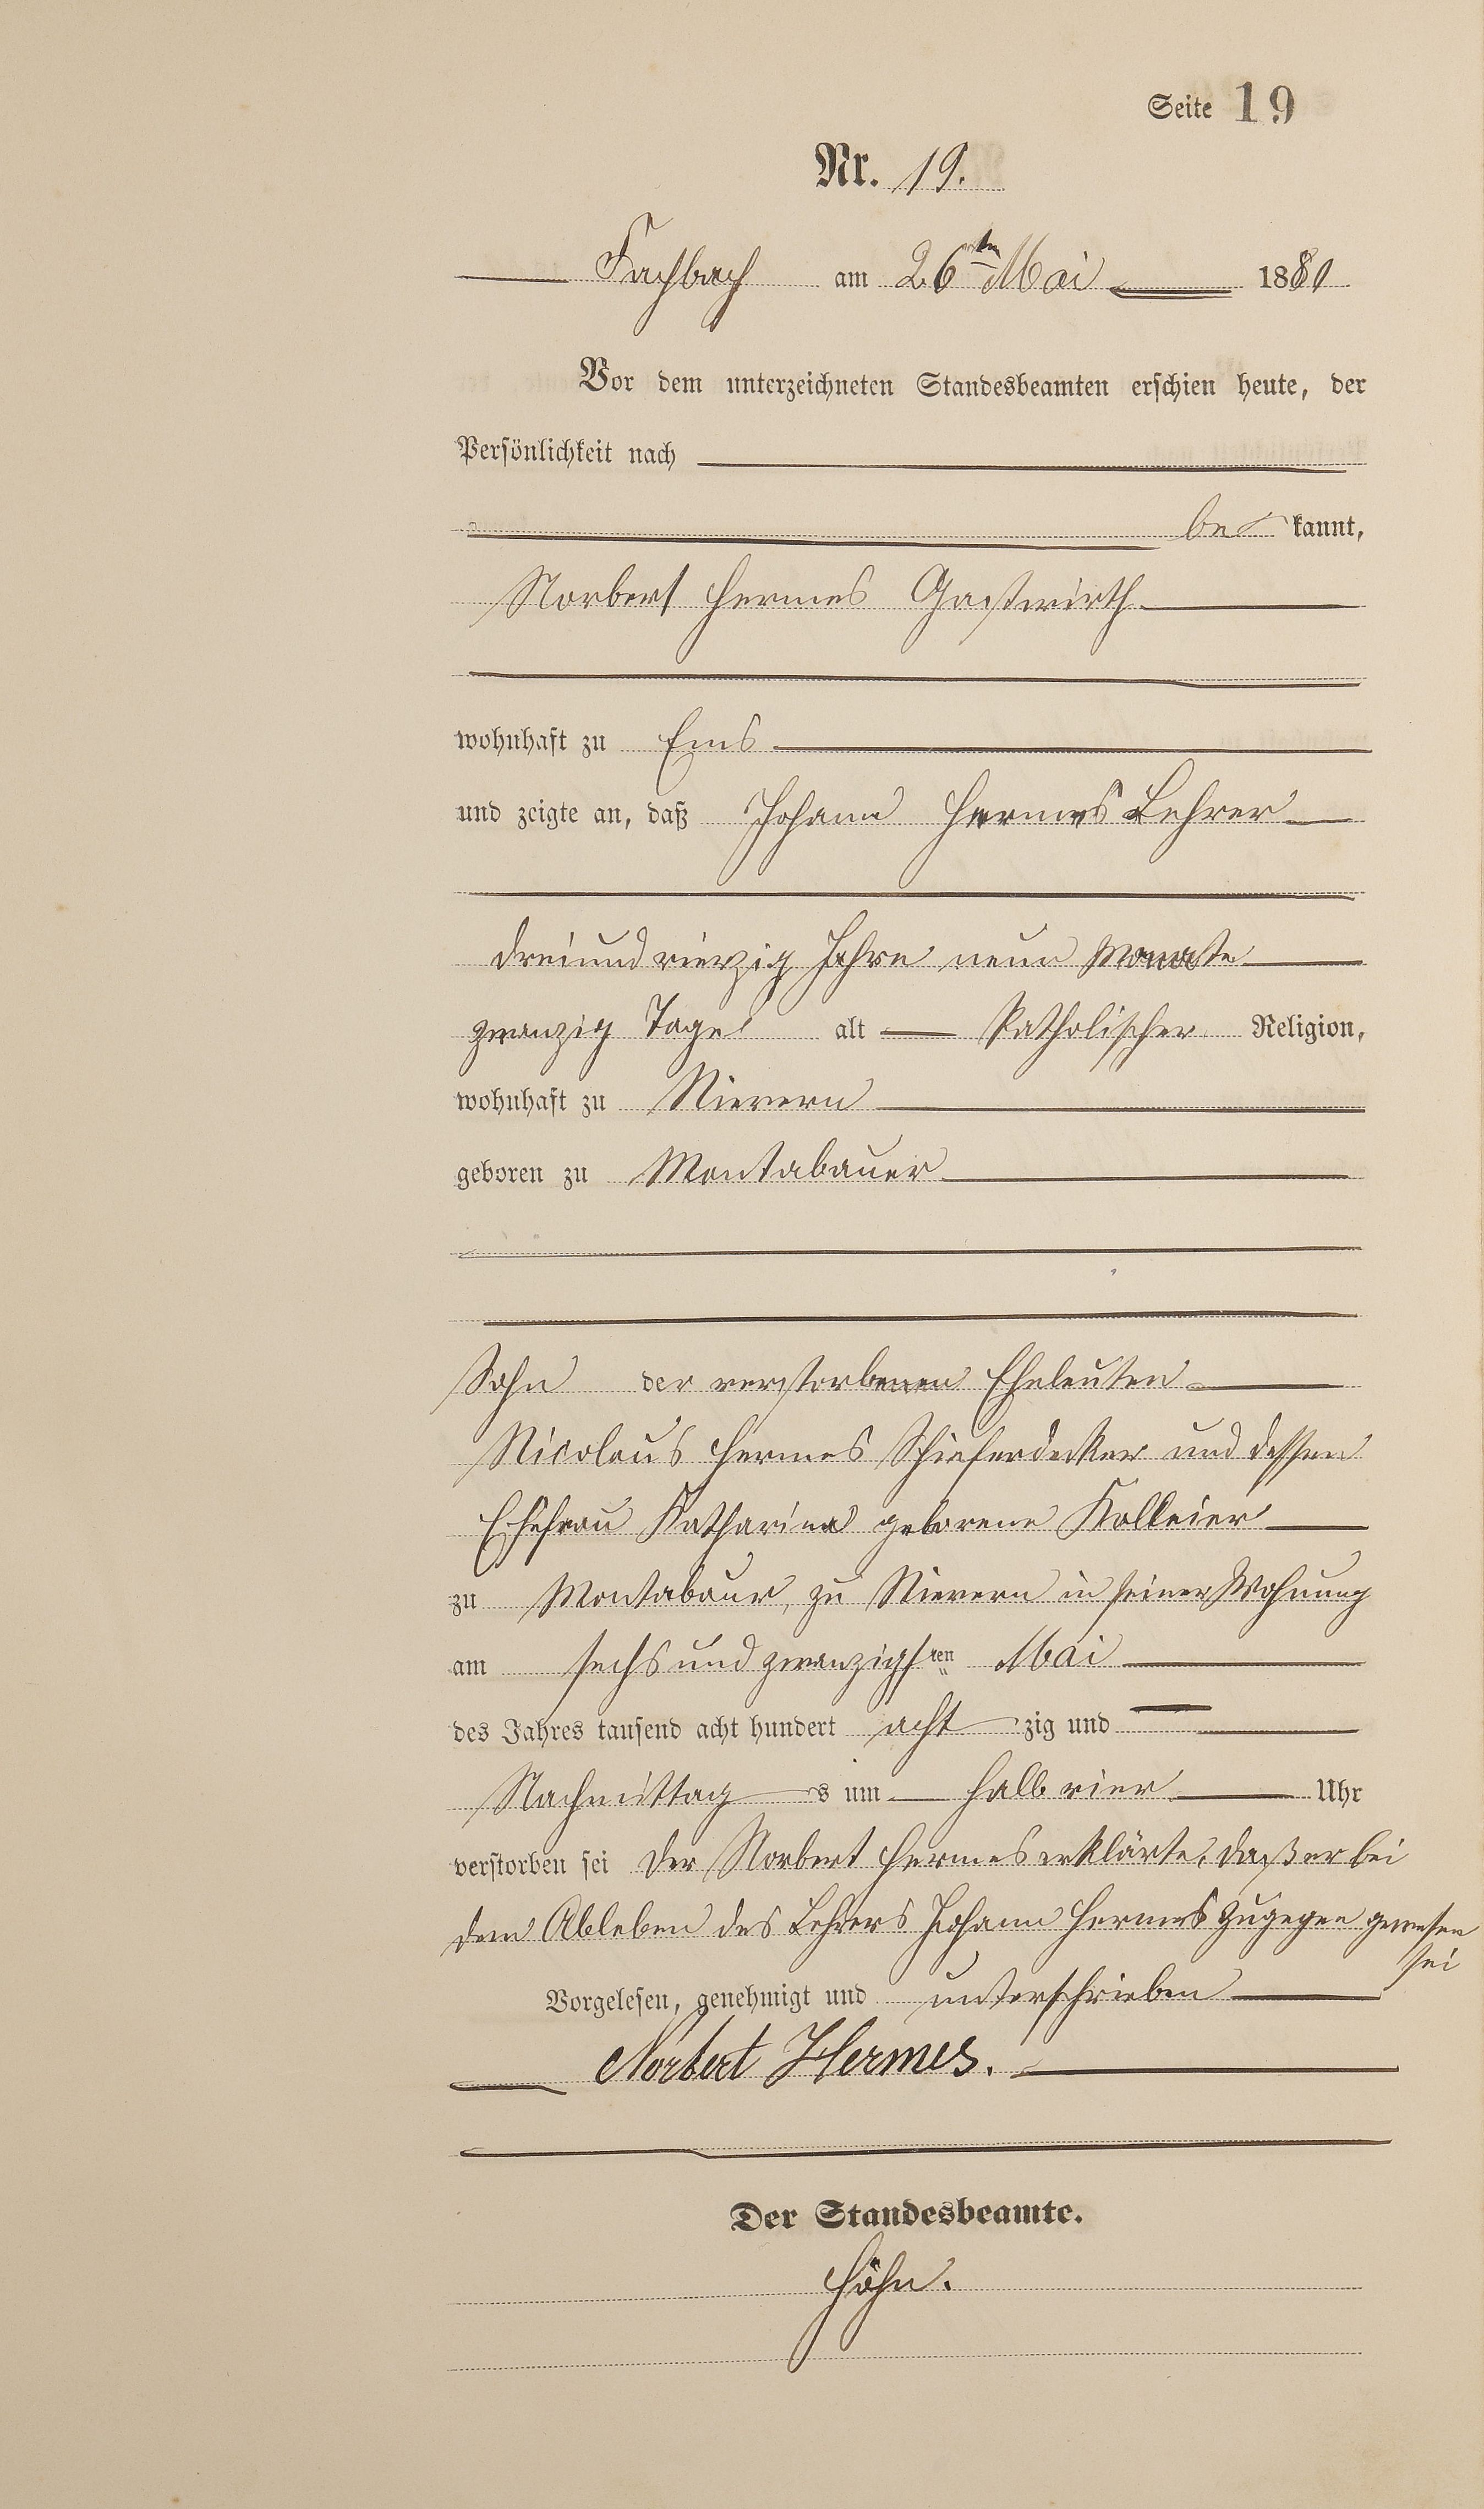 Seite 19
Nr. 19.
Fachbach am 26ten Mai 1880
Vor dem unterzeichneten Standesbeamten erschien heute, der
Persönlichkeit nach
be kannt,
Norbert Hermes Gastwirth
wohnhaft zu Ems
und zeigte an, daß Johann Hermes Lehrer
dreiundvierzig Jahre neun Monate
zwanzig Tage alt Katholischer Religion,
wohnhaft zu Nievern
geboren zu Montabauer
Sohn der verstorbenen Eheleuten
Nicolaus Hermes Schieferdecker und dessen
Ehefrau Katharina geborene
zu Montabaur, zu Nievern in seiner Wohnung
am sechsundzwanzigsten Mai
des Jahres tausend acht hundert acht zig und
Nachmittag s um halb vier Uhr
verstorben sei Der Norbert Hermes erklärte, daß er bei
dem Ableben des Lehrers Johann Hermes zugegen gewesen
sei
Vorgelesen, genehmigt und unterschrieben
Norbert Hermes.
Der Standesbeamte.
Höhn.